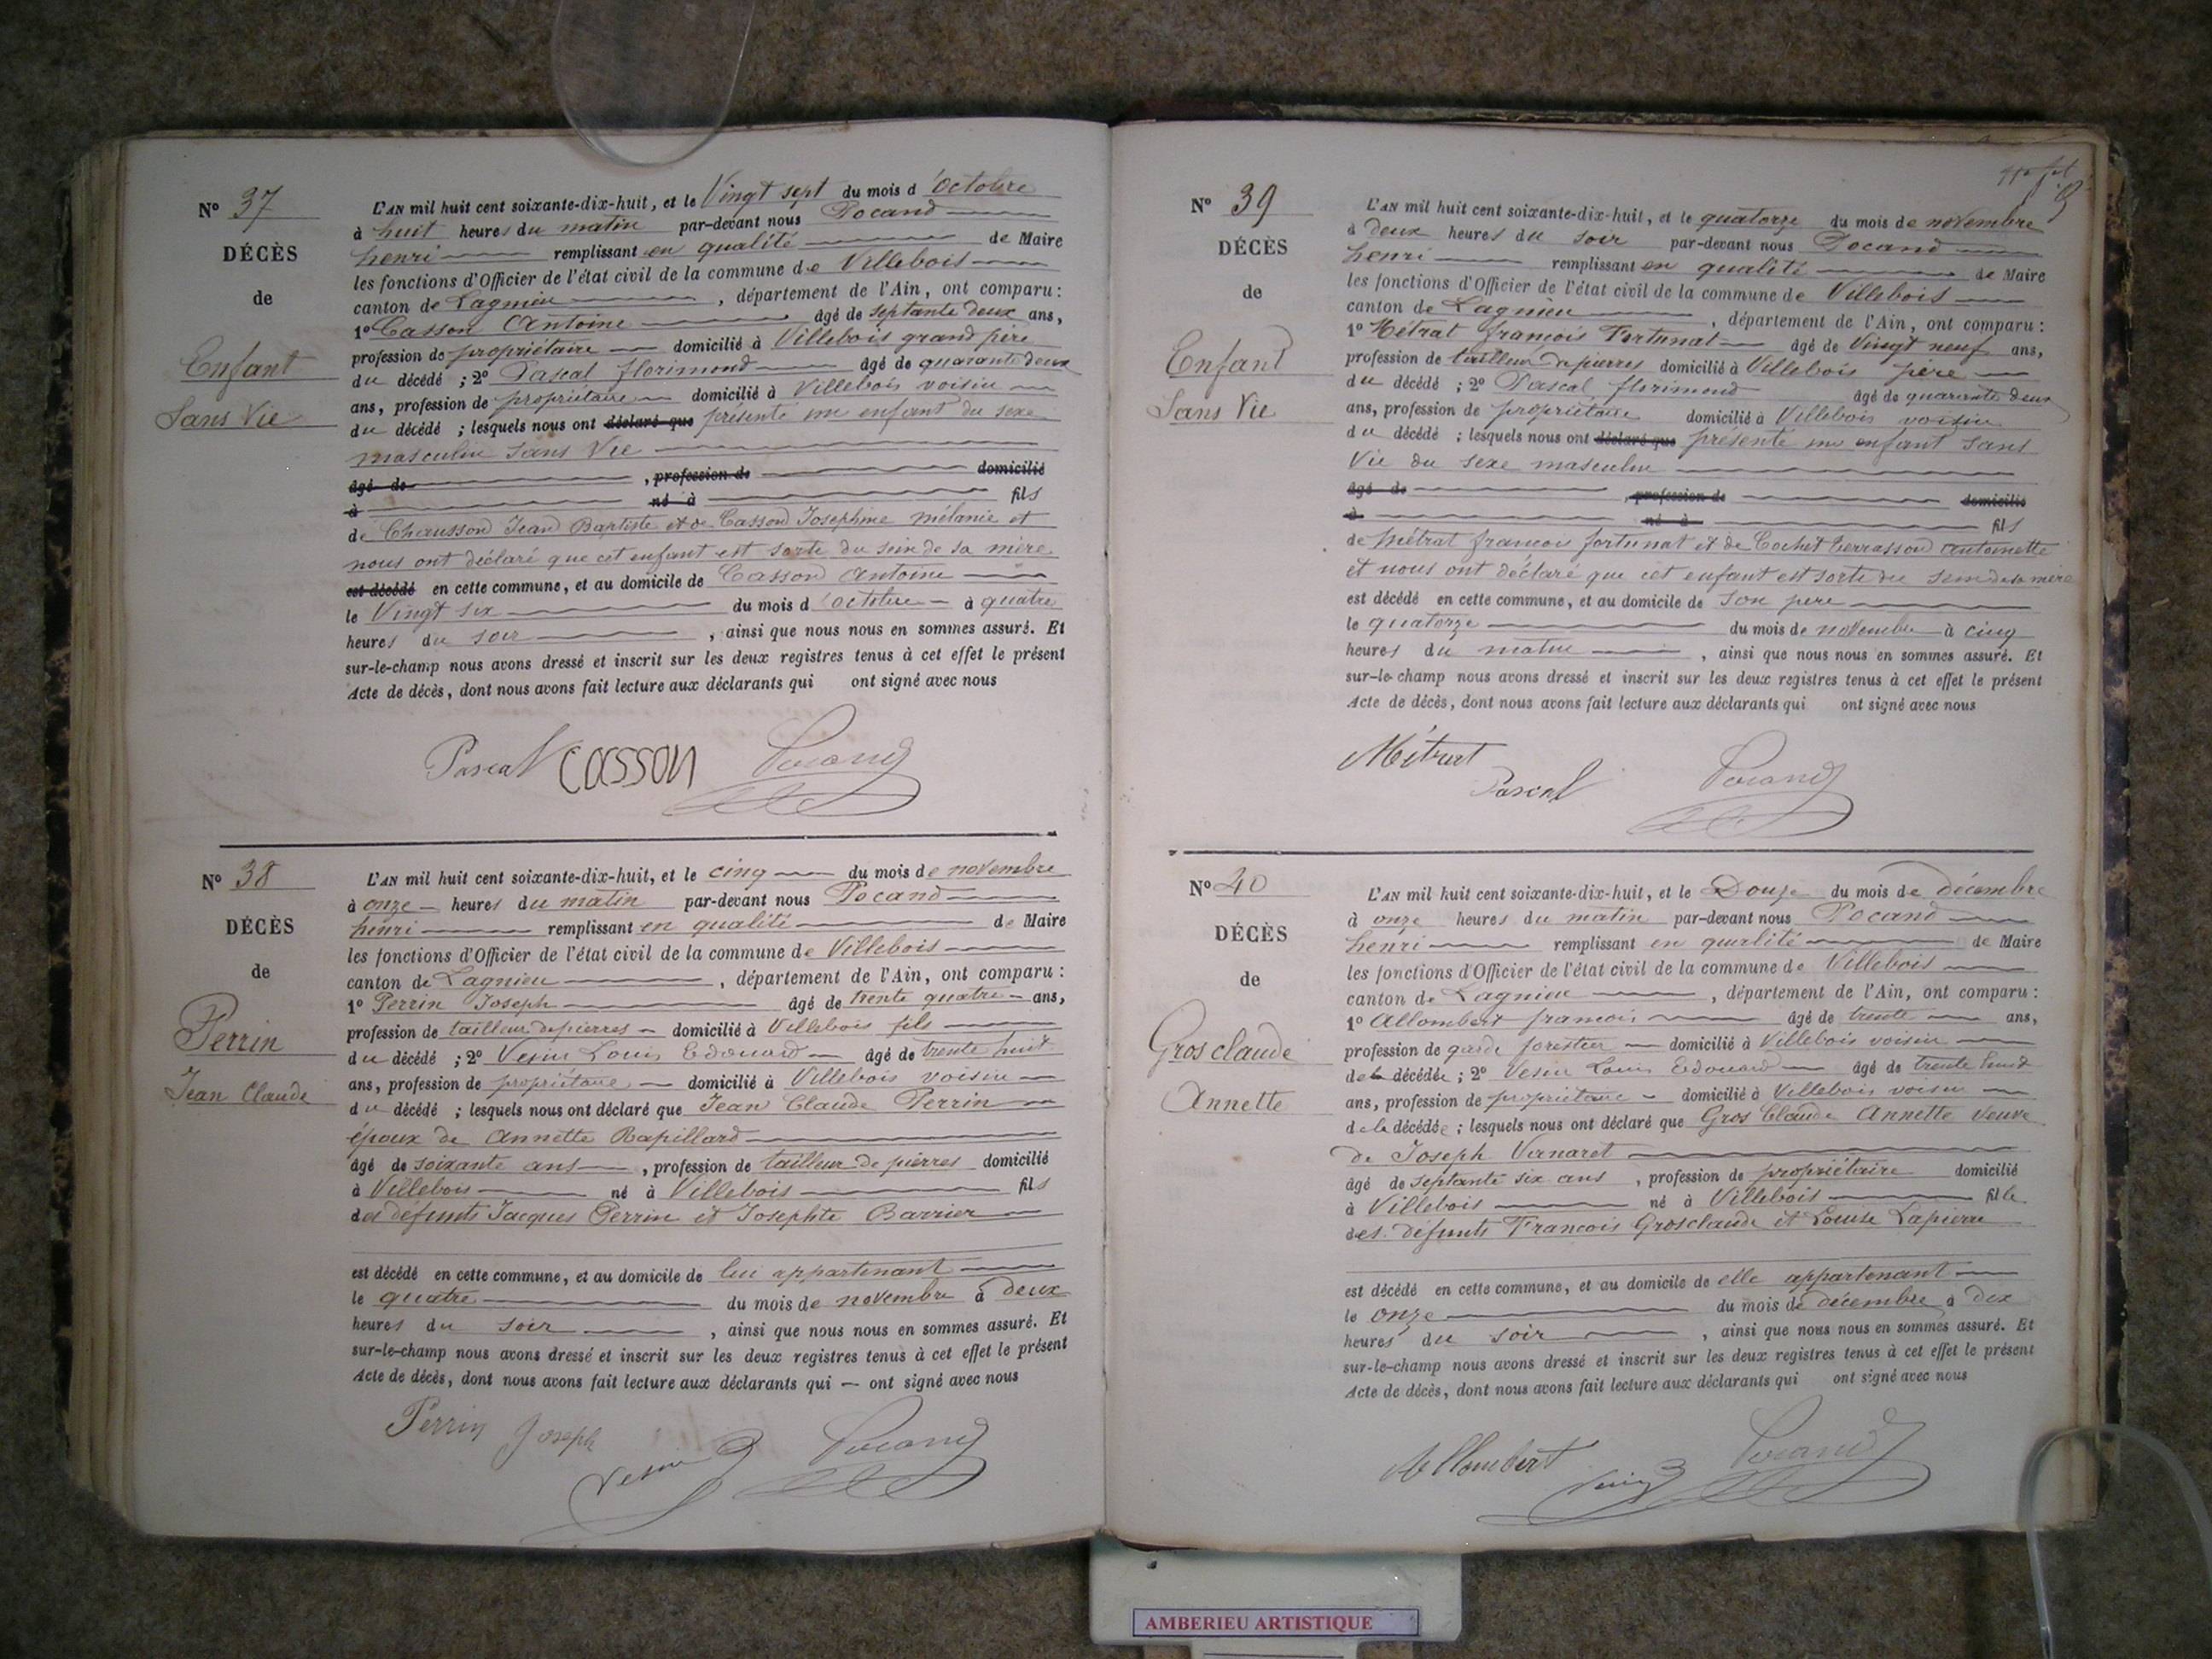 Nº 37
DÉCÈS
de
Enfant
Sans Vie
L'AN mil huit cent soixante-dix-huit, et le Vingt sept du mois d'Octobre
à huit heures du matin par-devant nous Pocand
henri remplissant en qualité de Maire
les fonctions d'Officier de l'état civil de la commune de Villebois
canton de Lagnieu, département de l'Ain, ont comparu :
1º Casson Antoine âgé de septante deux ans,
profession de propriétaire domicilié à Villebois grand père
du décédé ; 2º Pascal florimond âgé de quarante deux
ans, profession de propriétaire domicilié à Villebois voisin
du décédé ; lesquels nous ont déclaré que présenté un enfant du sexe
masculin Sans Vie
âgé de , profession de domicilié
à né à fils
de Chausson Jean Baptiste et de Casson Josephine mélanie et
nous ont déclaré que cet enfant est sorte du sein de sa mère
est décédé en cette commune, et au domicile de Casson Antoine
le Vingt six du mois d'octobre à quatre
heures du soir , ainsi que nous nous en sommes assuré. Et
sur-le-champ nous avons dressé et inscrit sur les deux registres tenus à cet effet le présent
Acte de décès, dont nous avons fait lecture aux déclarants qui ont signé avec nous
Pascal Casson Pocand
Nº 38
DÉCÈS
de
Perrin
Jean Claude
L'AN mil huit cent soixante-dix-huit, et le cinq du mois de novembre
à onze heures du matin par-devant nous Pocand
henri remplissant en qualité de Maire
les fonctions d'Officier de l'état civil de la commune de Villebois
canton de Lagnieu , département de l'Ain, ont comparu :
1º Perrin Joseph âgé de trente quatre ans,
profession de tailleur de pierres domicilié à Villebois fils
du décédé ; 2º Vesin Louis Edouard âgé de trente huit
ans, profession de propriétaire domicilié à Villebois voisin
du décédé ; lesquels nous ont déclaré que Jean Claude Perrin
époux de Annette Rapillard
âgé de soixante ans , profession de tailleur de pierres domicilié
à Villebois né à Villebois fils
des defunts Jacques Perrin et Josephte Barrier
est décédé en cette commune, et au domicile de lui appartenant
le quatre du mois de novembre à deux
heures du soir , ainsi que nous nous en sommes assuré. Et
sur-le-champ nous avons dressé et inscrit sur les deux registres tenus à cet effet le présent
Acte de décès, dont nous avons fait lecture aux déclarants qui — ont signé avec nous
Perrin Joseph
Vesin Pocand
Nº 39
DÉCÈS
de
Enfant
Sans Vie
L'AN mil huit cent soixante-dix-huit, et le quatorze du mois de novembre
à deux heures du soir par-devant nous Pocand
henri remplissant en qualité de Maire
les fonctions d'Officier de l'état civil de la commune de Villebois
canton de Lagnieu , département de l'Ain, ont comparu :
1º Métrat françois Fortunat âgé de Vingt neuf ans,
profession de tailleur de pierres domicilié à Villebois père
du décédé ; 2º Pascal florimond âgé de quarante deux
ans, profession de propriétaire domicilié à Villebois voisin
du décédé ; lesquels nous ont déclaré que présenté un enfant sans
Vie du sexe masculin
âgé de , profession de domicilié
à né à fils
de Métrat francois fortunat et de Cochet Terrasson antoinette
et nous ont déclaré que cet enfant est sorte du sein de sa mère
est décédé en cette commune, et au domicile de son père
le quatorze du mois de novembre à cinq
heures du matin , ainsi que nous nous en sommes assuré. Et
sur-le-champ nous avons dressé et inscrit sur les deux registres tenus à cet effet le présent
Acte de décès, dont nous avons fait lecture aux déclarants qui ont signé avec nous
Métrat
Pascal Pocand
Nº 40
DÉCÈS
de
Grosclaude
Annette
L'AN mil huit cent soixante-dix-huit, et le Douze du mois de décembre
à onze heures du matin par-devant nous Pocand
henri remplissant en qualité de Maire
les fonctions d'Officier de l'état civil de la commune de Villebois
canton de Lagnieu , département de l'Ain, ont comparu :
1º Allombert francois âgé de trente ans,
profession de garde forestier domicilié à Villebois voisin
de la décédée ; 2º Vesin Louis Edouard âgé de trente huit
ans, profession de propriétaire domicilié à Villebois voisin
de la décédée ; lesquels nous ont déclaré que Gros Claude Annette Veuve
de Joseph Varnaret
âgé de septante six ans , profession de propriétaire domicilié
à Villebois né à Villebois fille
des défunts Francois Grosclaude et Louise Lapierre
est décédé en cette commune, et au domicile de elle appartenant
le onze du mois de décembre à dix
heures du soir , ainsi que nous nous en sommes assuré. Et
sur-le-champ nous avons dressé et inscrit sur les deux registres tenus à cet effet le présent
Acte de décès, dont nous avons fait lecture aux déclarants qui ont signé avec nous
Allombert Vesin Pocand
AMBERIEU ARTISTIQUE